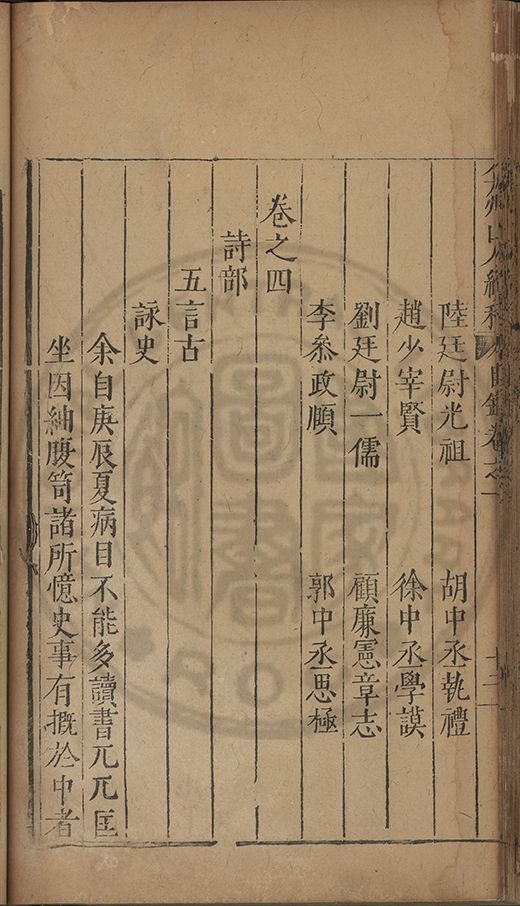 弇州山人續稿目錄卷之一 十二
陸廷尉光祖 胡中丞執禮
趙少宰賢 徐中丞學謨
劉廷尉一儒 顧廉憲章志
李叅政順 郭中丞思極
卷之四
詩部
五言古
詠史
余自庚辰夏病目不能多讀書兀兀匡
坐因紬腹笥諸所憶史事有摡於中者